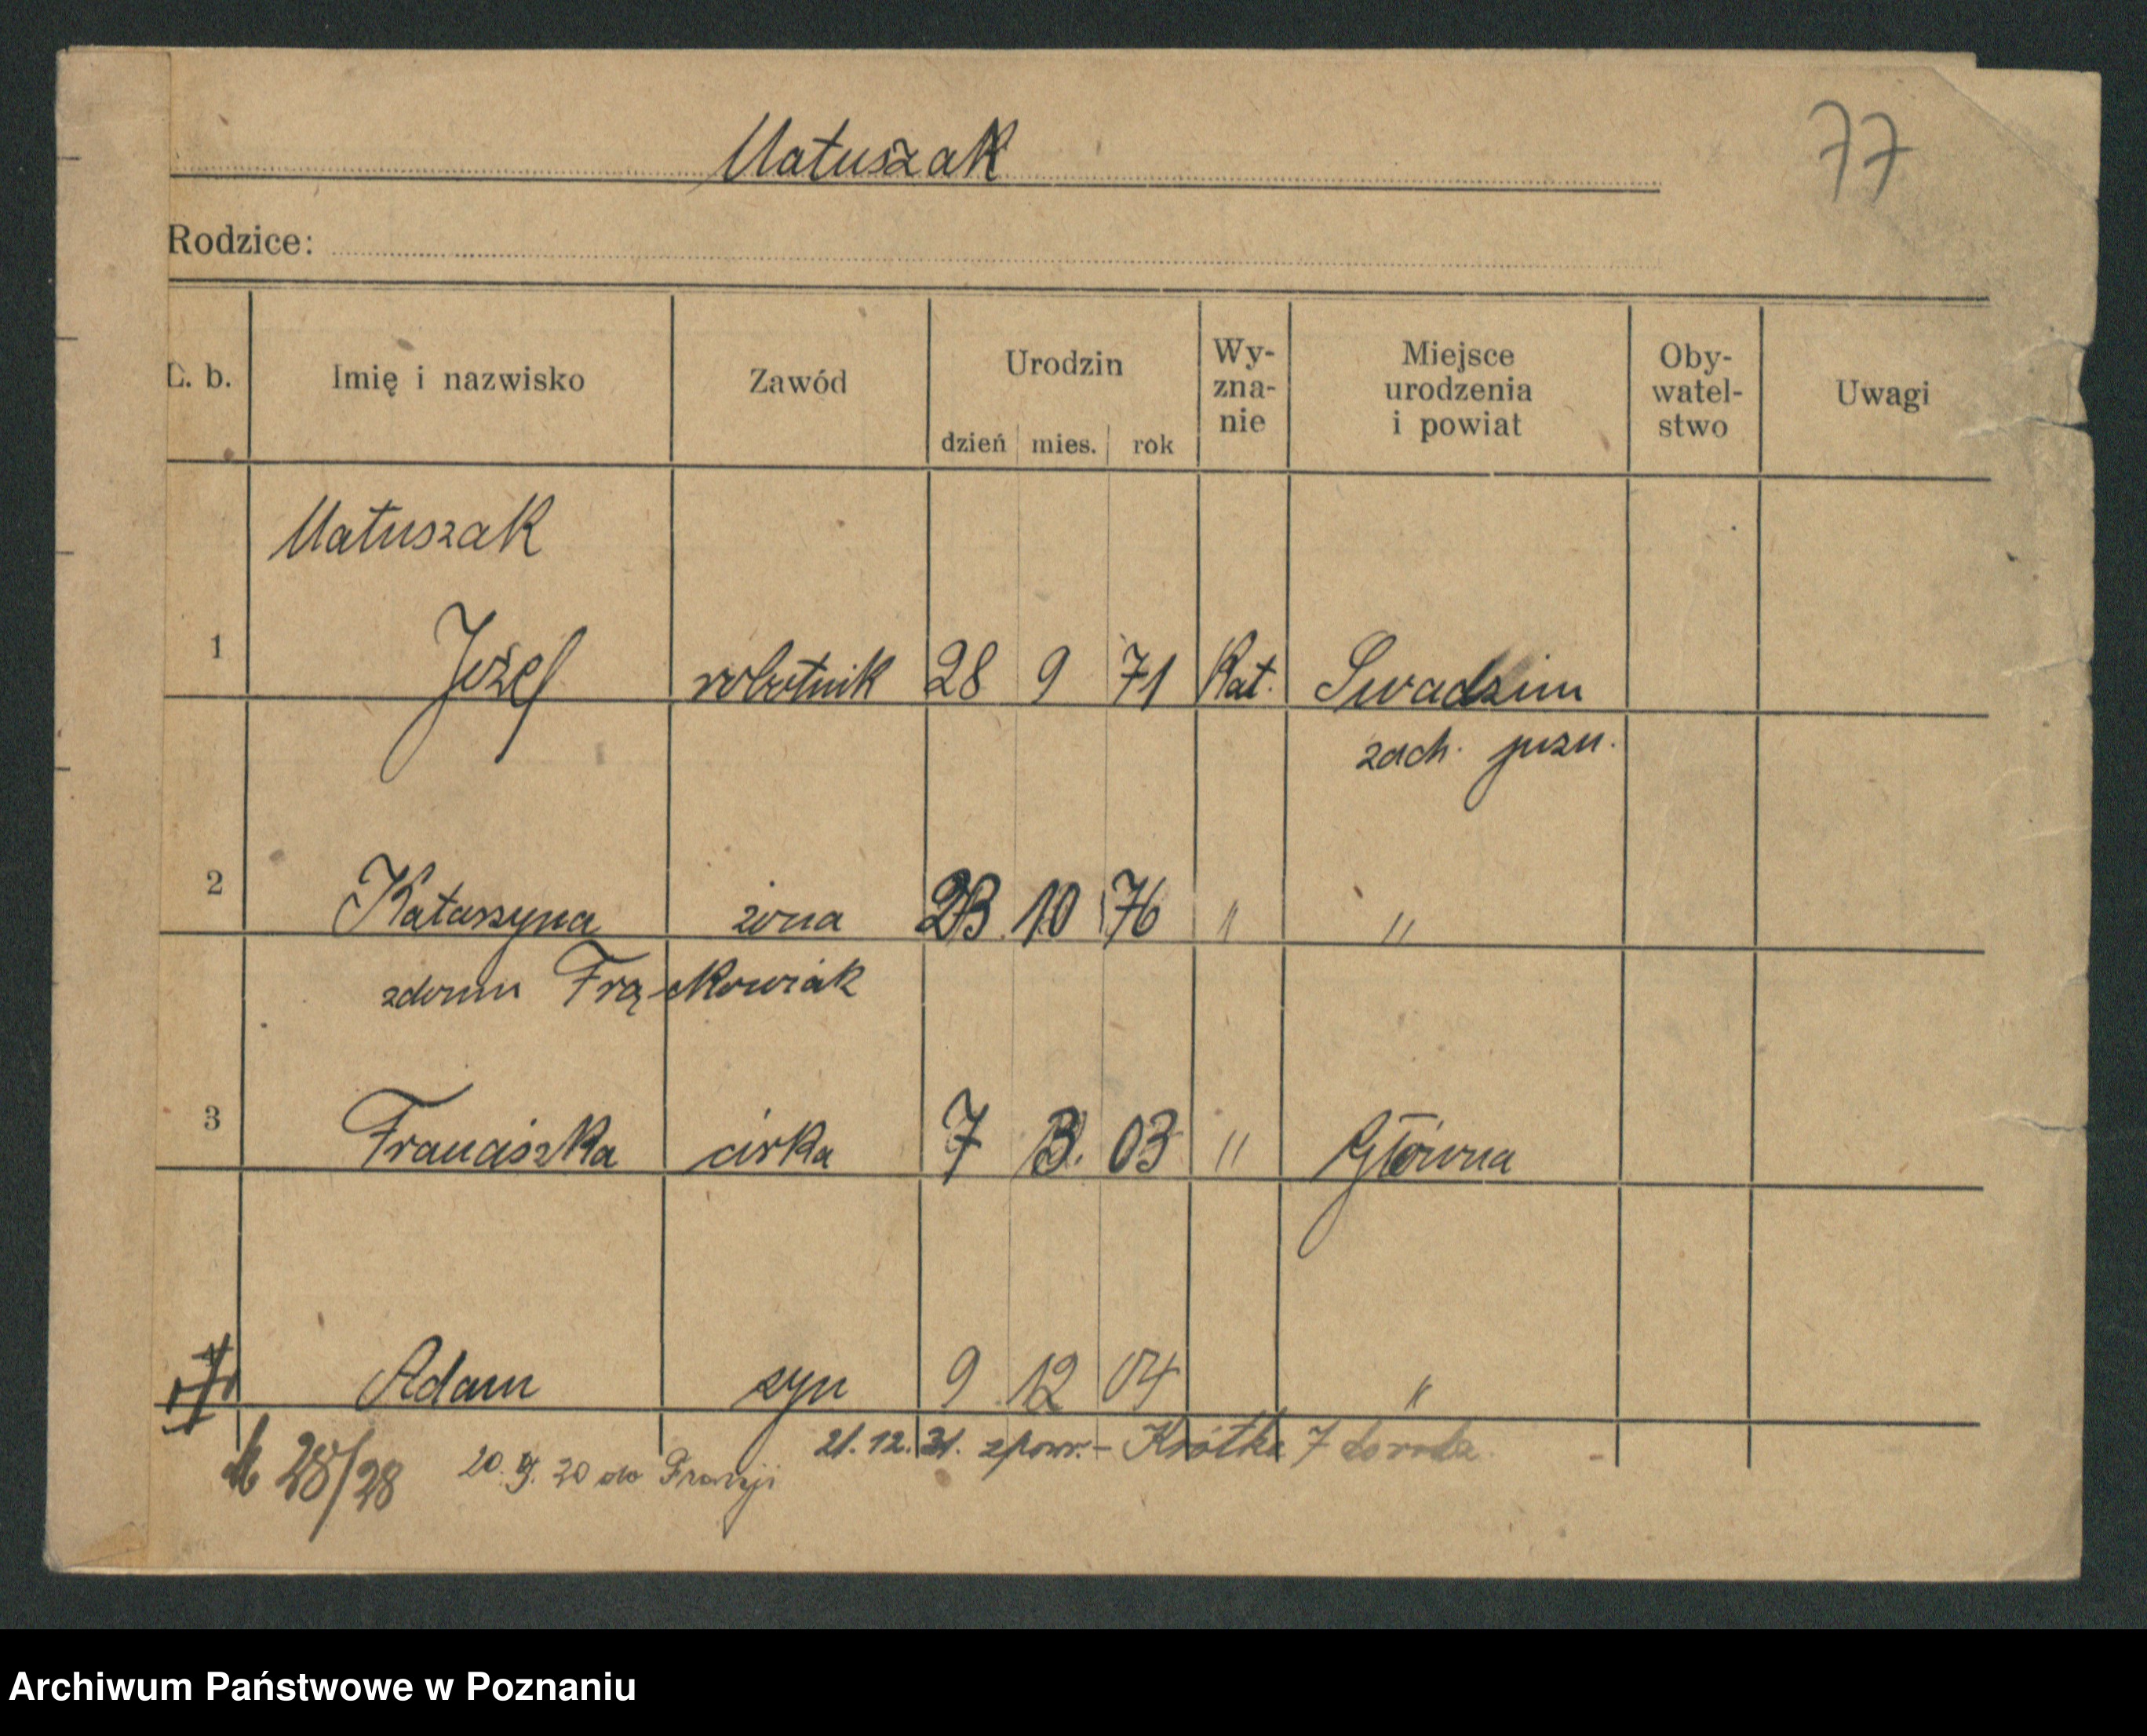 Matuszak
77
Rodzice:
L. b. Imię i nazwisko Zawód Urodzin dzień mies. rok Wy-zna-nie Miejsce urodzenia i powiat Oby-watel-stwo Uwagi
Matuszak
1 Józef robotnik 28 9 71 Kat. Swadzim
zach. pozn.
2 Katarzyna żona 23 10 76 " "
zdomu Frąckowiak
3 Franciszka córka 7 3. 03 " Główna
Adam syn 9 12 04 "
28/28 20. 9. 20 do Francji 21. 12. 31. zpowr. - Krótka 7
Archiwum Państwowe w Poznaniu